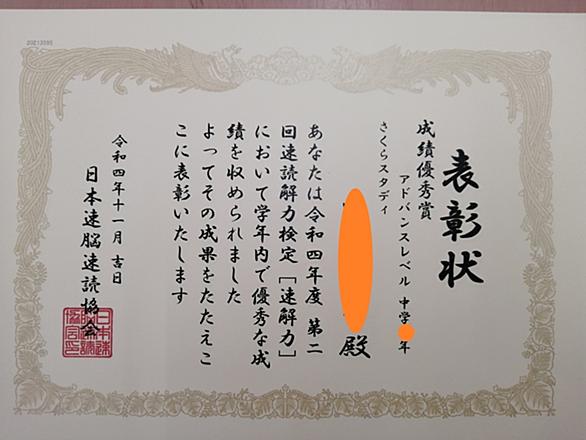 表彰状
成績優秀賞
アドバンスレベル 中学 年
さくらスタディ
殿
あなたは令和四年度 第二
回速読解力検定［速解力］
において学年内で優秀な成
績を収められました
よってその成果をたたえこ
こに表彰いたします
令和四年十一月 吉日
日本速脳速読協会